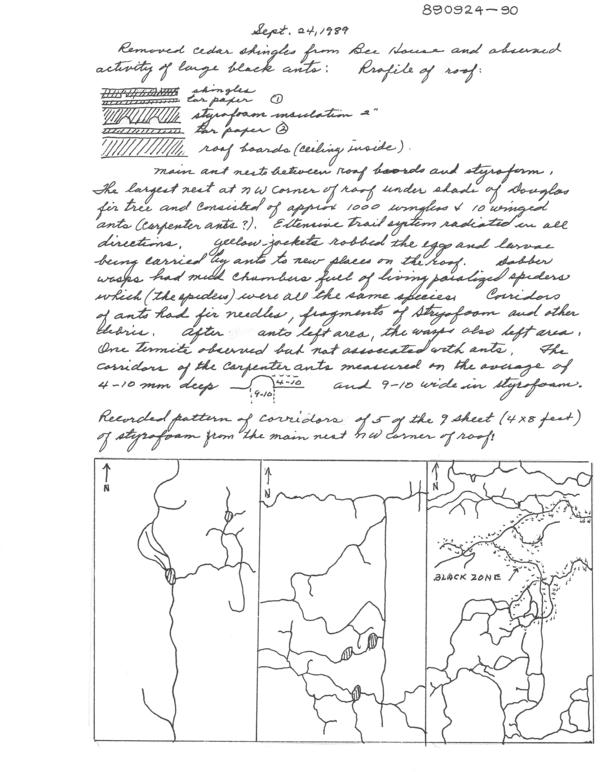 890924-90
Sept. 24, 1989
Removed cedar shingles from Bee House and observed
activity of large black ants: Profile of roof:
shingles
tar paper ①
styrofoam insulation 2"
tar paper ②
roof boards (ceiling inside).
main ant nests between roof boards and styroform.
The largest nest at NW corner of roof under shade of Douglas
fir tree and consisted of approx 1000 wingless & 10 winged
ants (carpenter ants?). Extensive trail system radiated in all
directions. yellow jackets robbed the eggs and larvae
being carried by ants to new places on the roof. Dabber
wasps had mud chambers full of living paralized spiders
which (the spiders) were all the same species. Corridors
of ants had fir needles, fragments of Stryofoam and other
debris. After ants left area, the wasps also left area.
One termite observed but not associated with ants. The
corridors of the carpenter ants measured on the average of
4-10 mm deep 4-10 9-10 and 9-10 wide in styrofoam.
Recorded pattern of corridors of 5 of the 9 sheet (4x8 feet)
of styrofoam from the main nest NW corner of roof:
N
N
N
BLACK ZONE